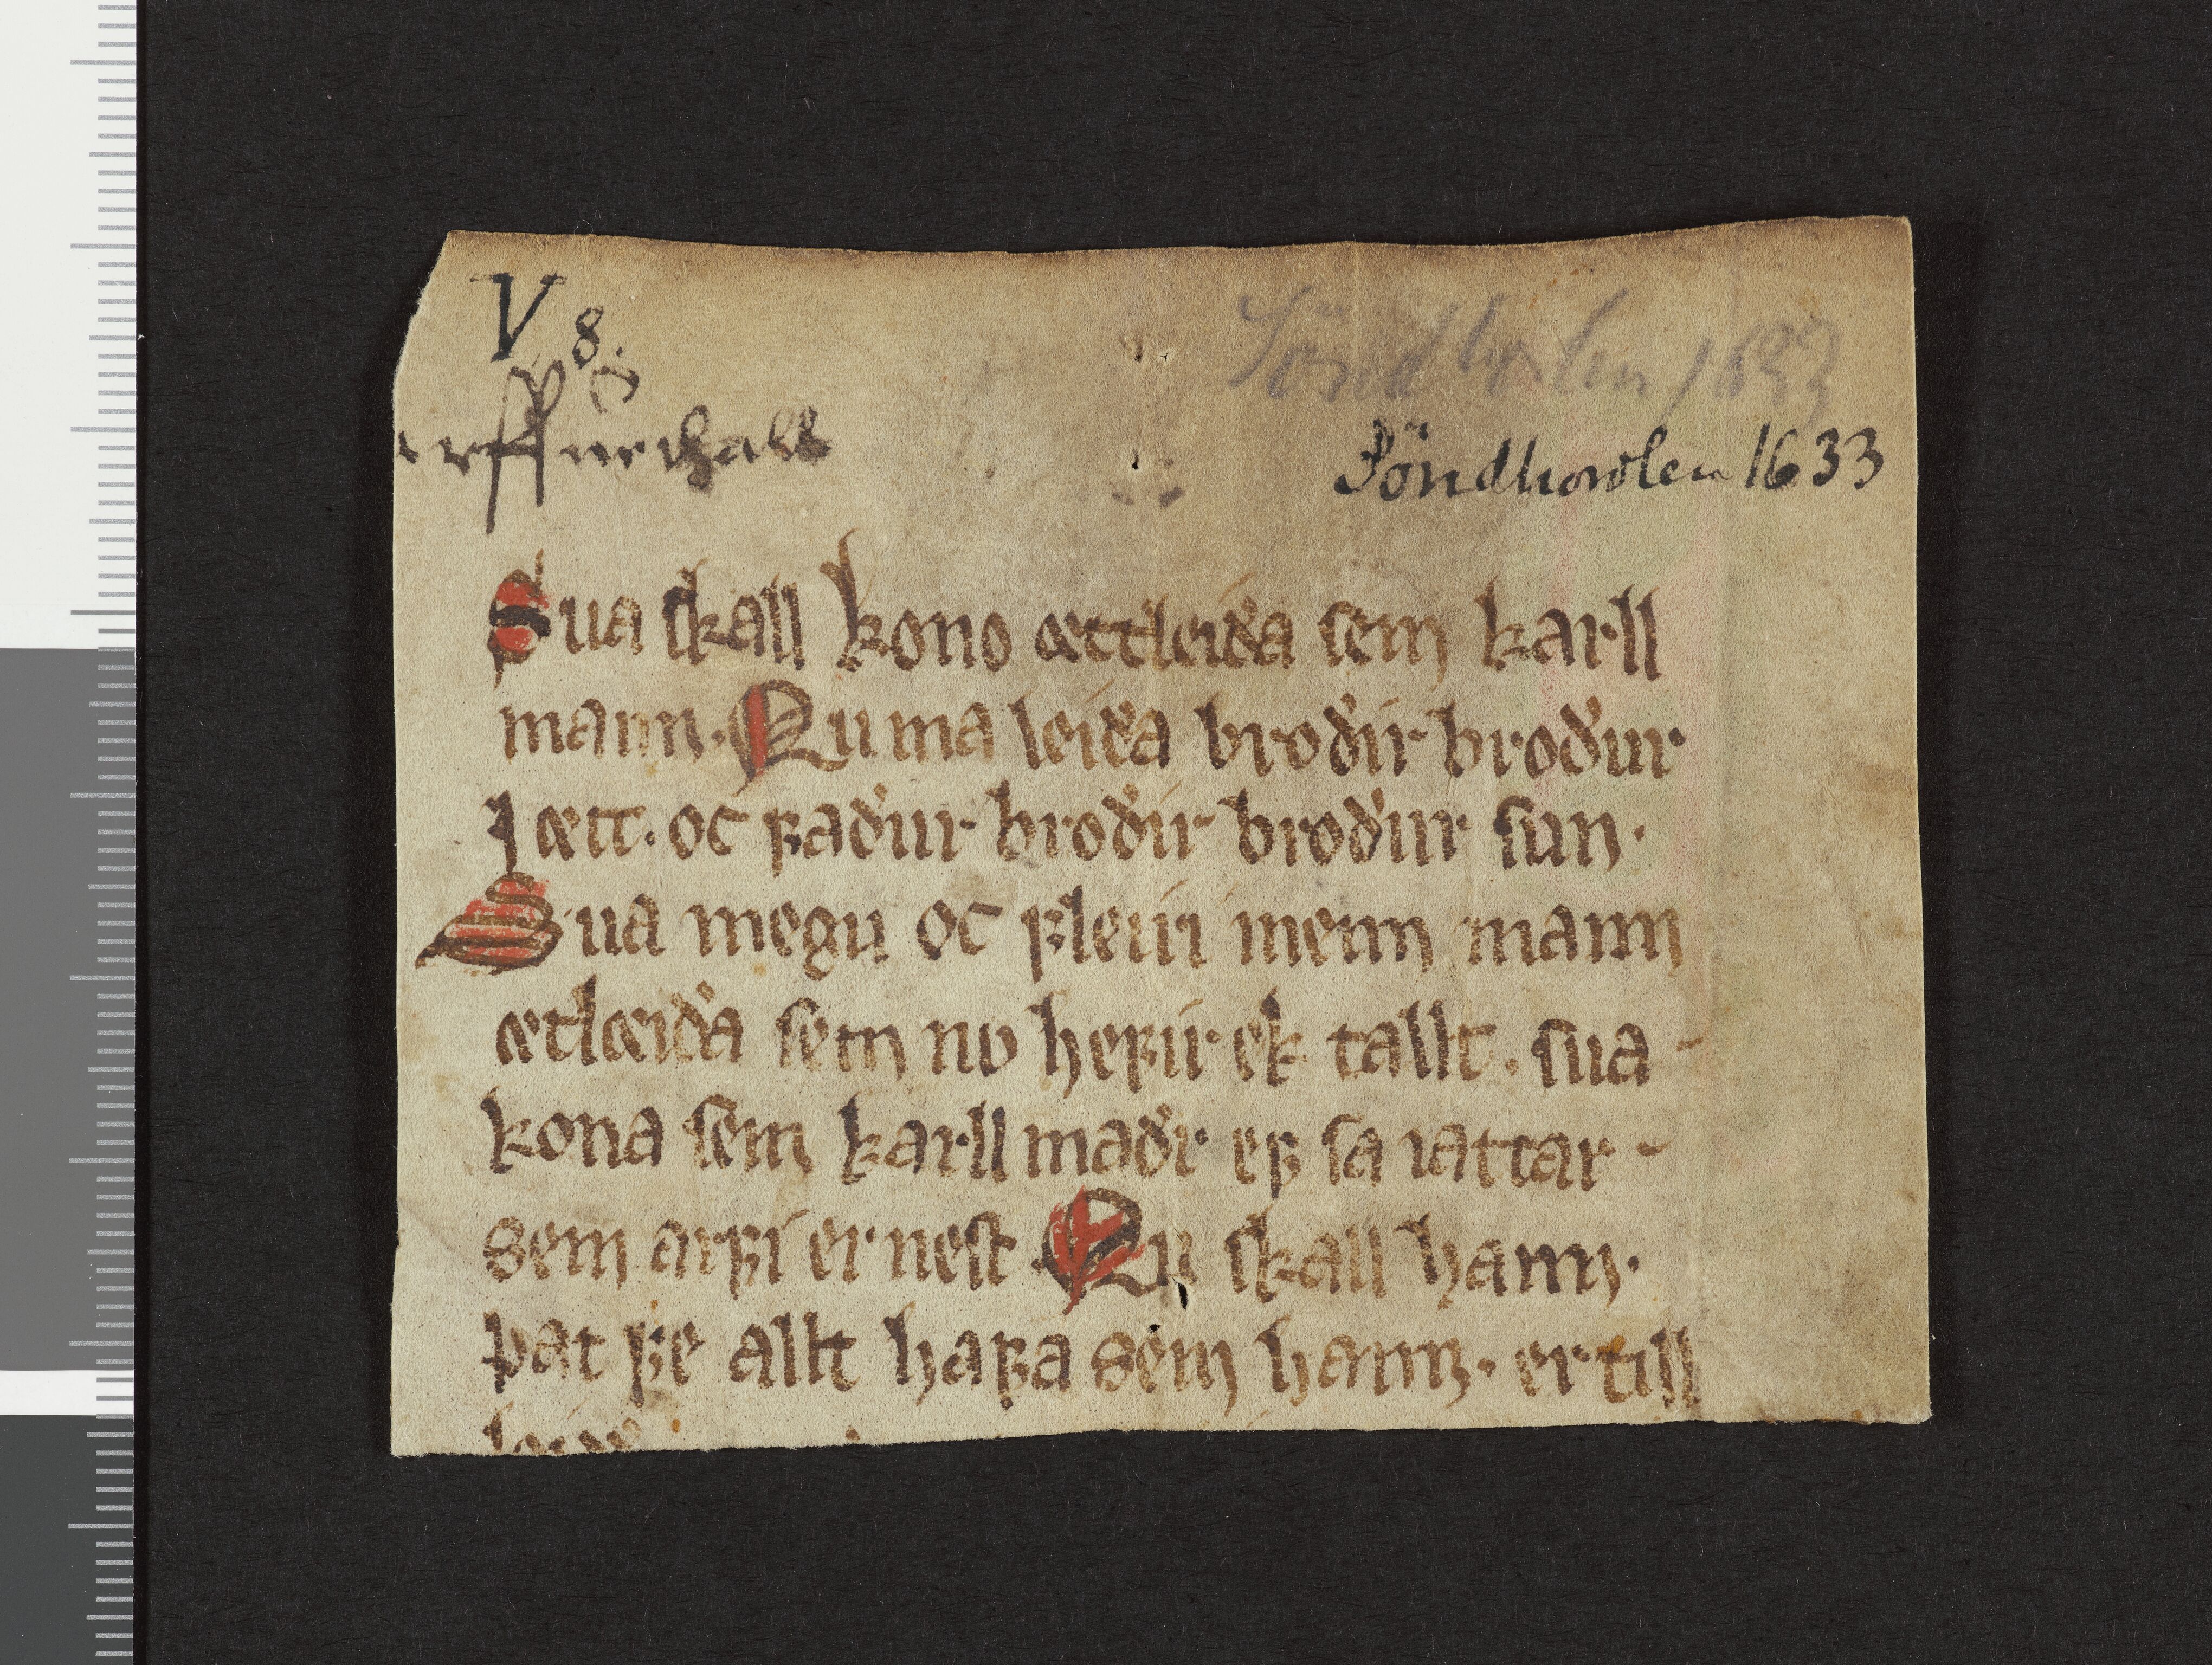 V 8.
Söndhorlen 1633
arffuechall
Söndhorlen 1633
Sua skall kono ættleiða sem karll
mann. Nu ma leiða broðir broður
j ætt. oc faður broðir broður sun.
Sua megu oc fleiri menn mann
ætlæiða sem nv hefir ek tallt. sua -
kona sem karll maðr ef sa iattar -
sem arfi er nest. Nu skall hann.
þat fe allt hafa sem hann. er till